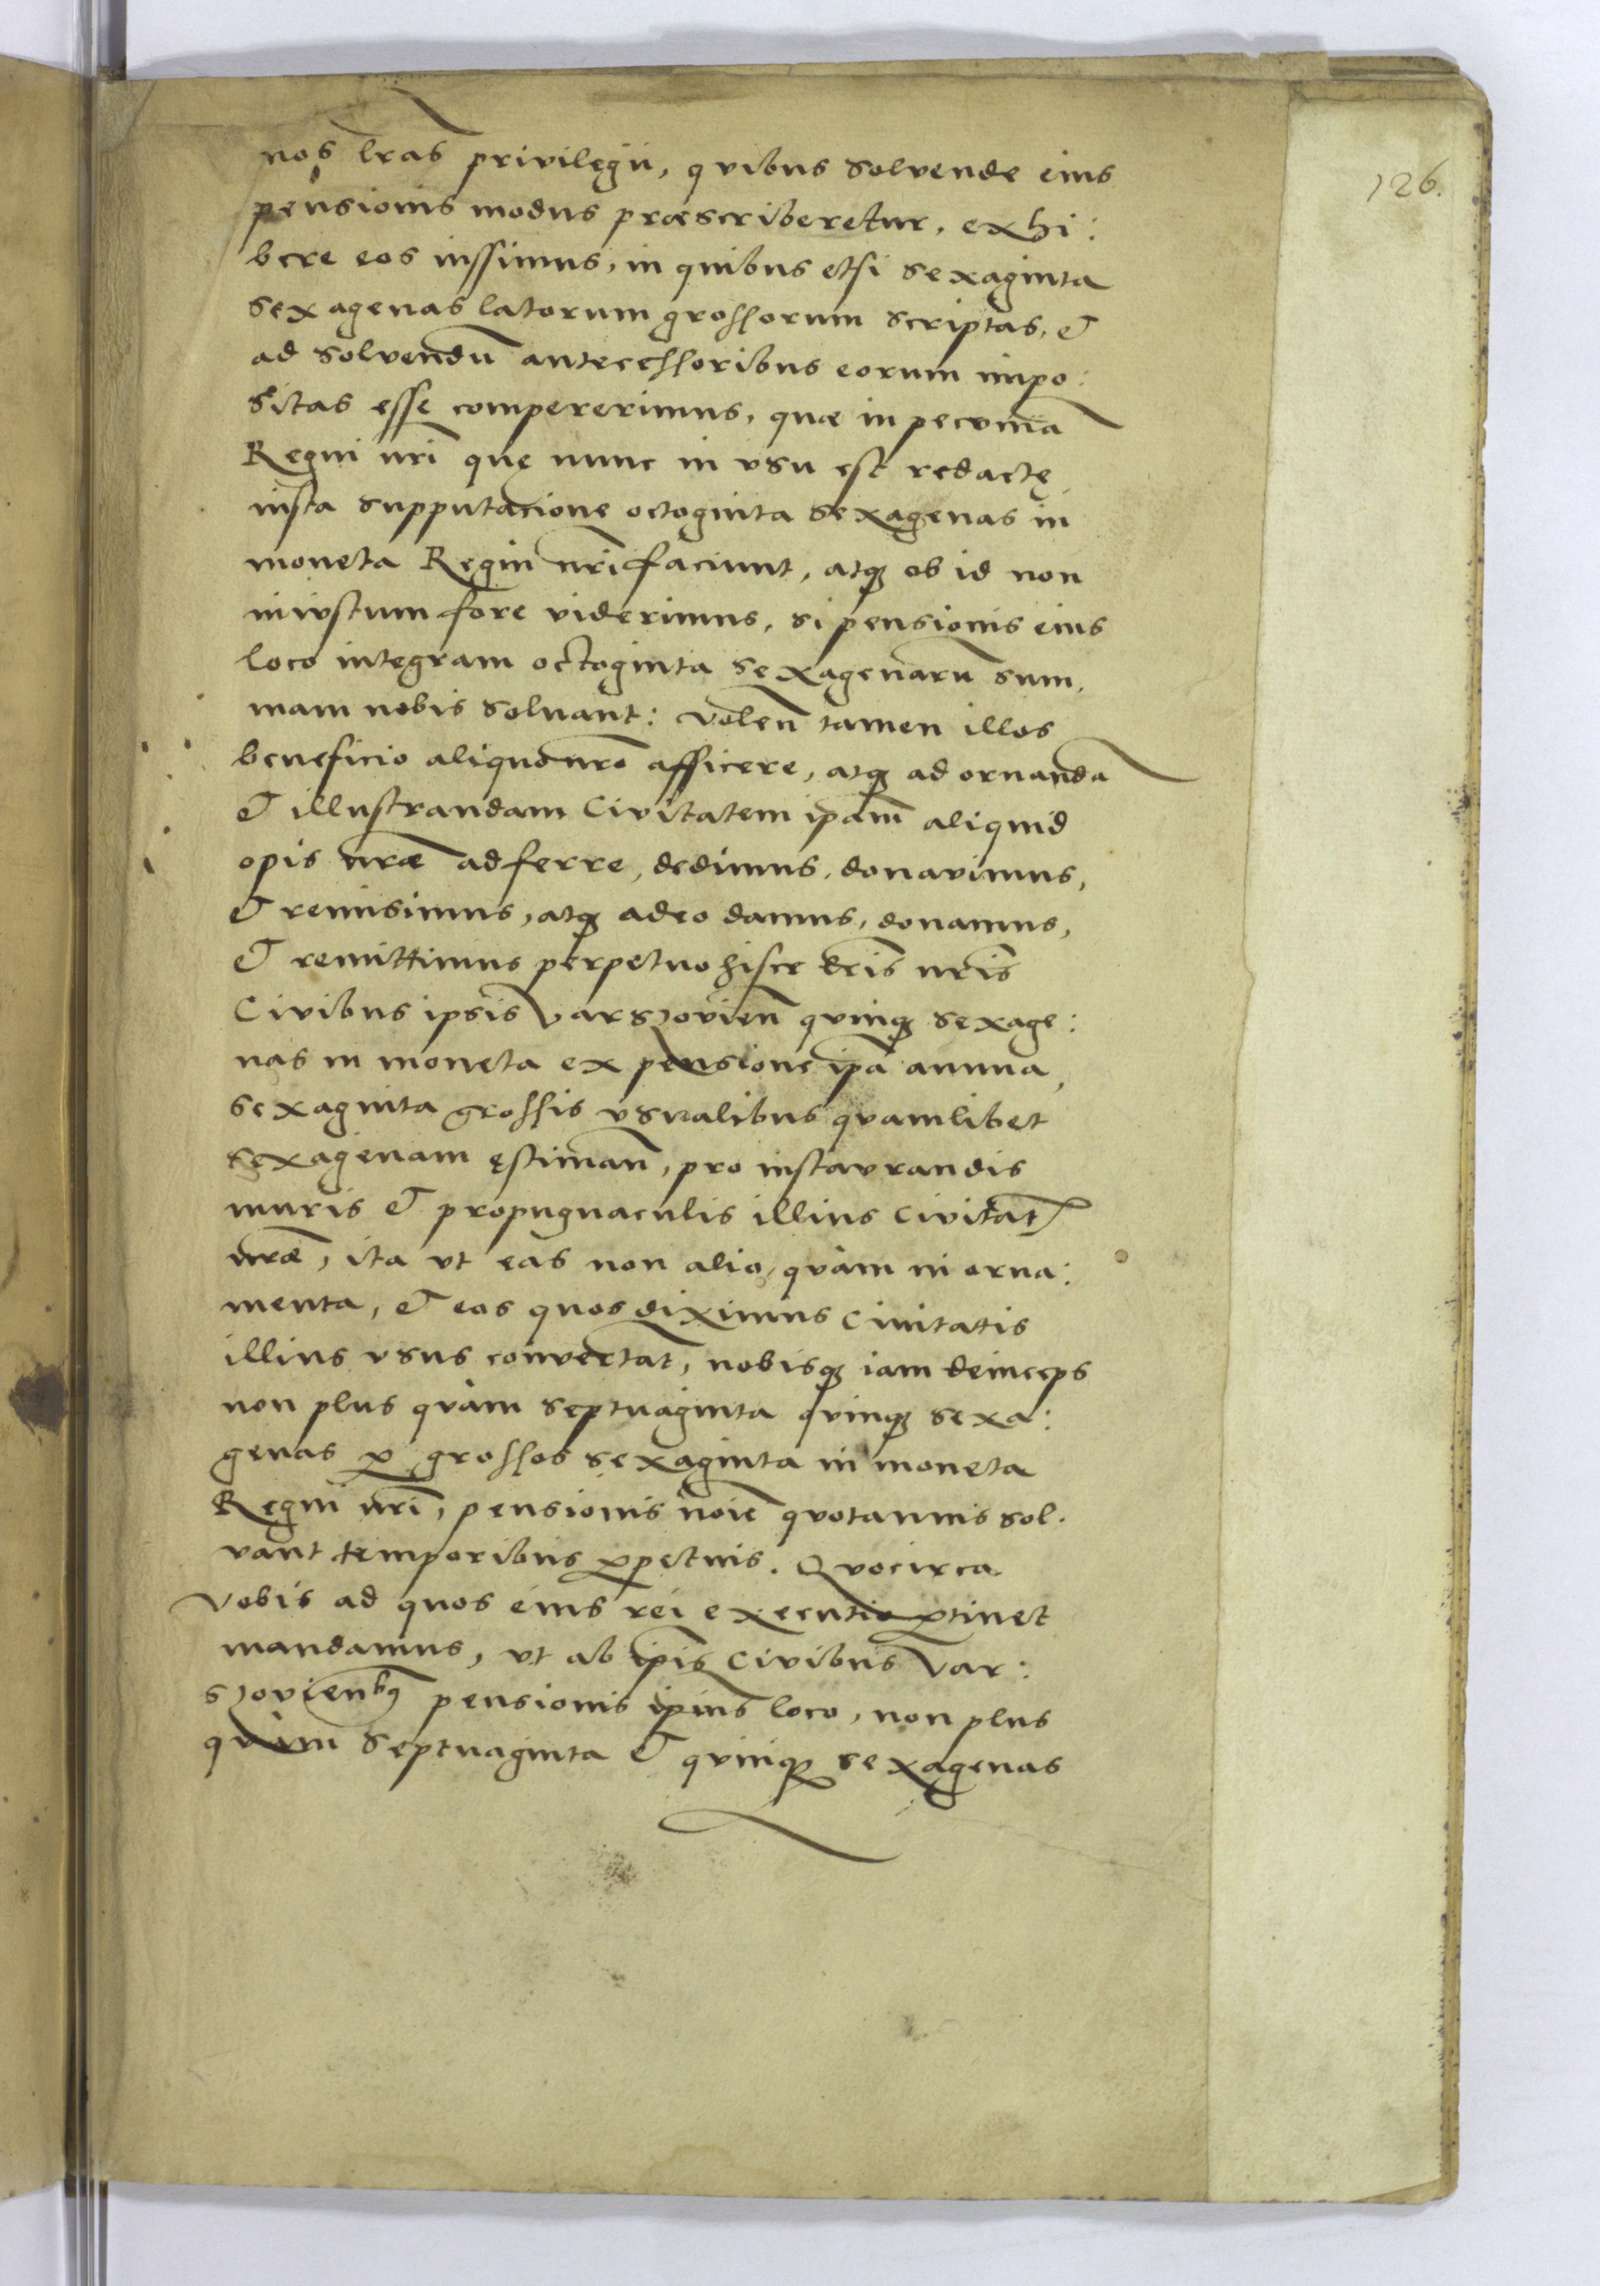 126.
nos lras privilegii, quibus solvende eius
pensionis modus præscriberetur, exhi:
bere eos iussimus, in quibus etsi sexaginta
sexagenas latorum grossorum scriptas, et
ad solvendū antecessoribus eorum impo:
sitas esse compererimus, quæ in pecuniā
Regni nri quę nunc in usu est redactę
iusta supputacione octoginta sexagenas in
moneta Regni nri faciunt, atq; ob id non
iniustum fore viderimus, si pensionis eius
loco integram octoginta sexagenarū sum,
mam nobis soluant: volen tamen illos
beneficio aliquo nro afficere, atq; ad ornandā
et illustrandam Civitatem ipam aliquid
opis nræ adferre, dedimus, donavimus,
et remisimus, atq; adeo damus, donamus,
et remittimus perpetuo hisce lris nris
Civibus ipsis Varschovien quinq; sexage:
nas in moneta ex pensione ipa annua,
sexaginta grossis usualibus quamlibet
sexagenam ęstiman, pro instaurandis
muris et propugnaculis illius Civitat
nræ, ita ut eas non alio, quàm in orna:
menta, et eos quos diximus Civitatis
illius usus convertāt, nobisq; iam deinceps
non plus quàm septuaginta quinq; sexa:
genas p grossos sexaginta in moneta
Regni nri, pensionis noie quotannis sol.
vant temporibus ppetuis. Quocirca
vobis ad quos eius rei executio ptinet
mandamus, ut ab ipis Civibus Var:
schovienbq pensionis ipius loco, non plus
quàm septuaginta et quinq; sexagenas